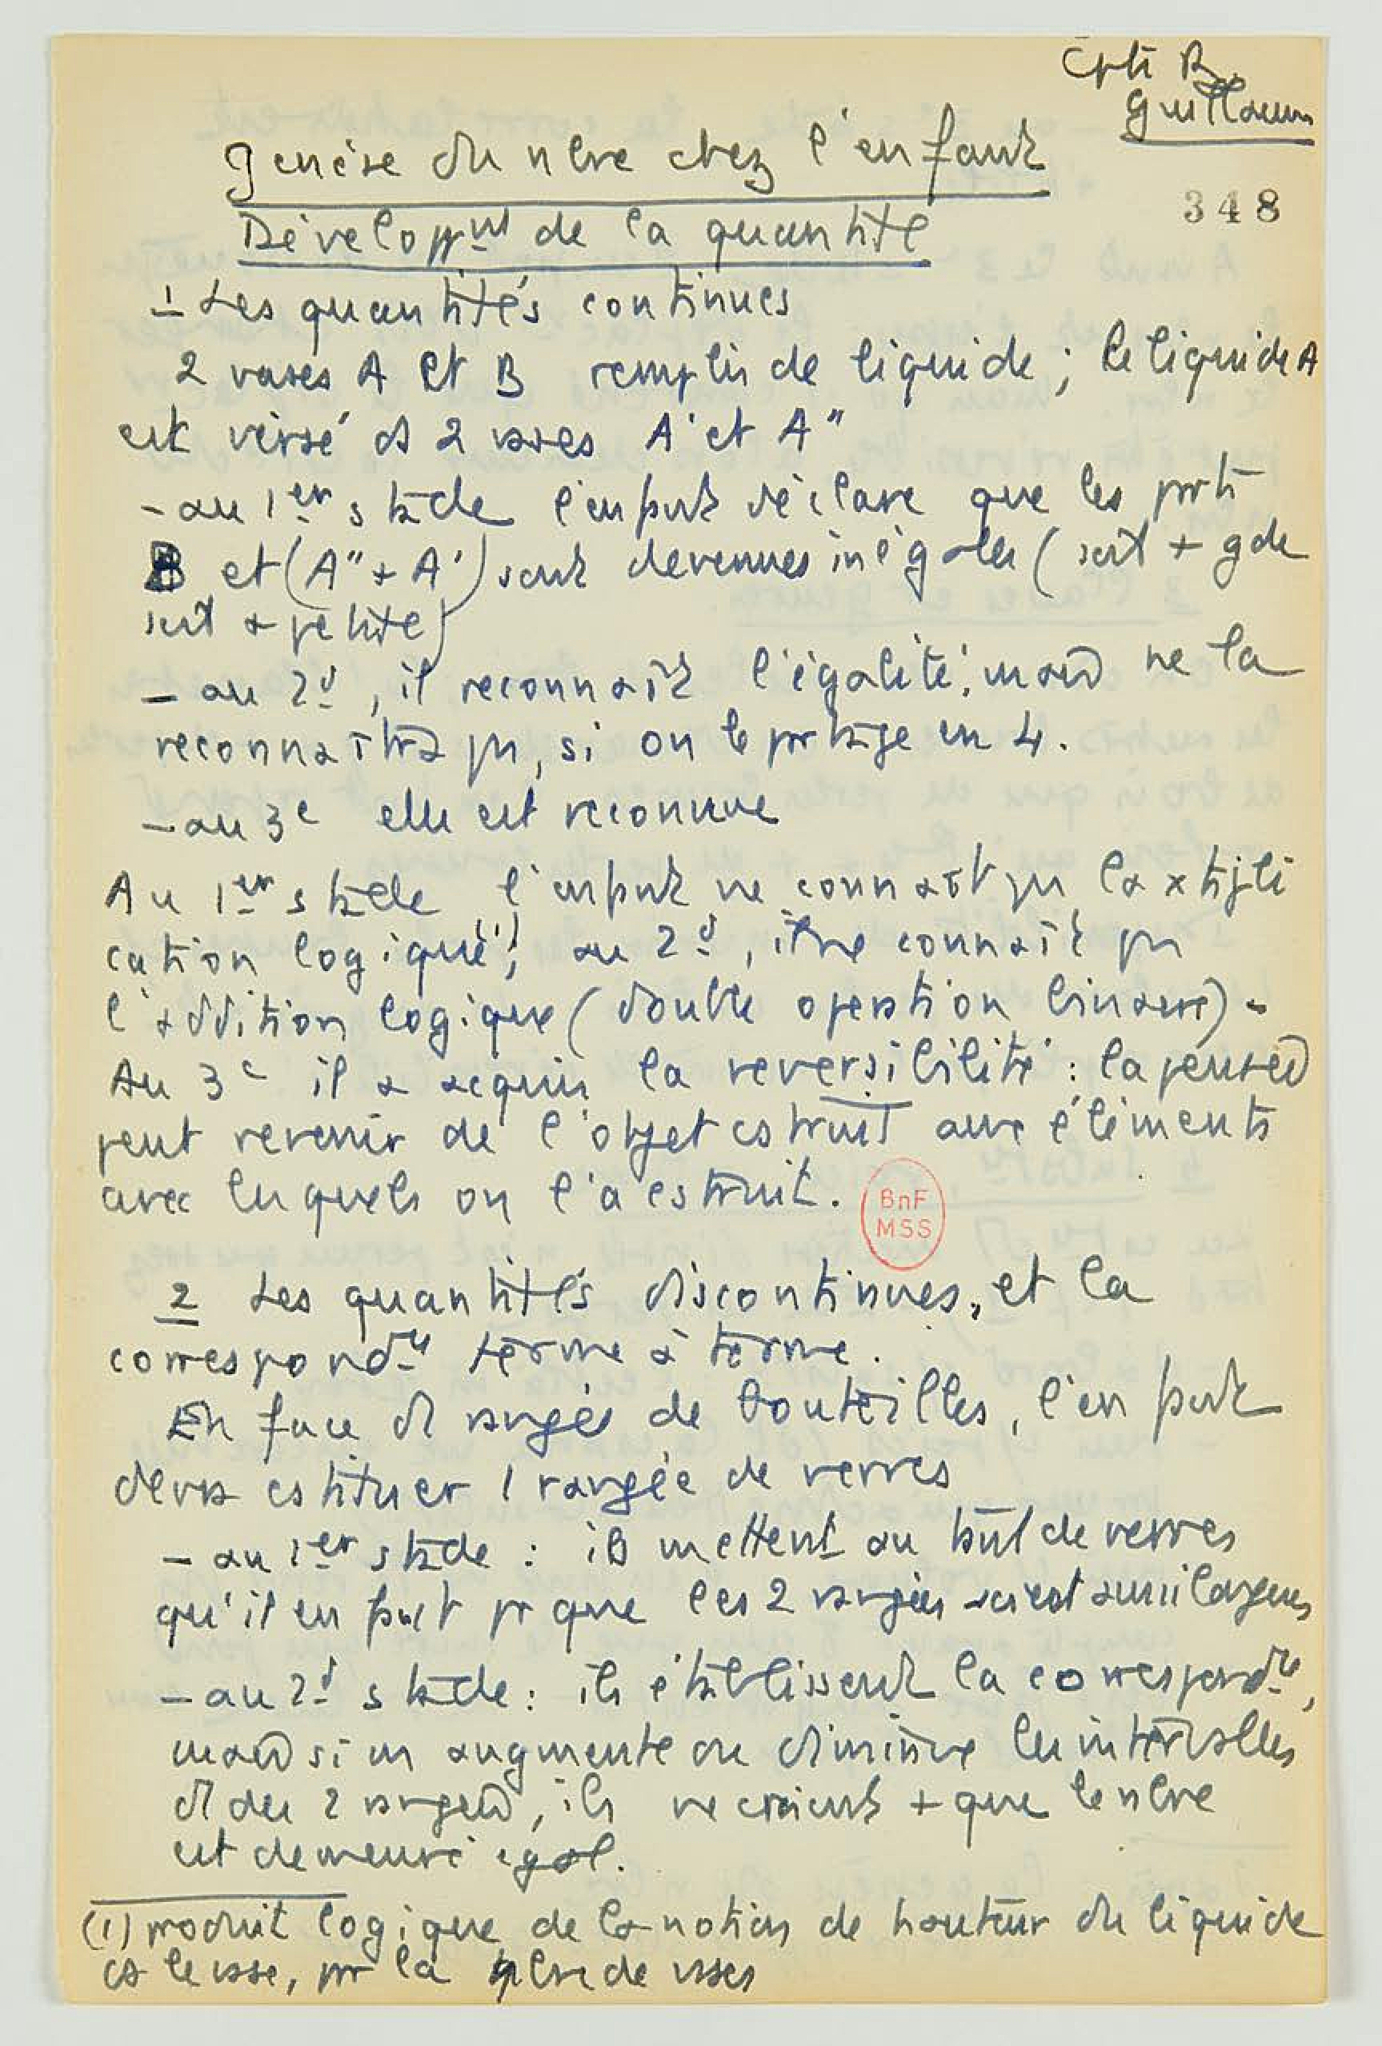 Cpti B.
Guillaum
348
Genèse du nbre chez l'enfant
Développnt de la quantité
1 Les quantités continues
2 vases A et B remplis de liquide ; le liquide A
est versé ds 2 vases A' et A"
- au 1er stade l'enfant déclare que les prts
B et (A" + A') sont devenues inégales (soit + gde
soit + petite)
- au 2d, il reconnaît l'égalité, mais ne la
reconnaîtra pas, si on le partage en 4.
- au 3e elle est reconnue
Au 1er stade l'enfant ne connaît pas la xtipli
cation logique(1) ; au 2d, il ne connaît pas
l'addition logique (double opération linéaire).
Au 3e il a acquis la reversibilité : la pensée
peut revenir de l'objet cstruit aux éléments
avec lesquels on l'a cstruit.
BnF
MSS
2 Les quantités discontinues, et la
correspondce terme à terme.
En face d rangée de bouteilles, l'enfant
devra cstituer 1 rangée de verres
- au 1er stade : ils mettent au tant de verres
qu'il en faut pr que les 2 rangées soient aussi longues
- au 2d stade : ils établissent la correspondce,
mais si on augmente ou diminue les intervalles
d des 2 rangées, ils ne croient + que le nbre
est demeuré égal.
(1) produit logique de la notion de hauteur du liquide
ds le vase, pr la nbre de vases